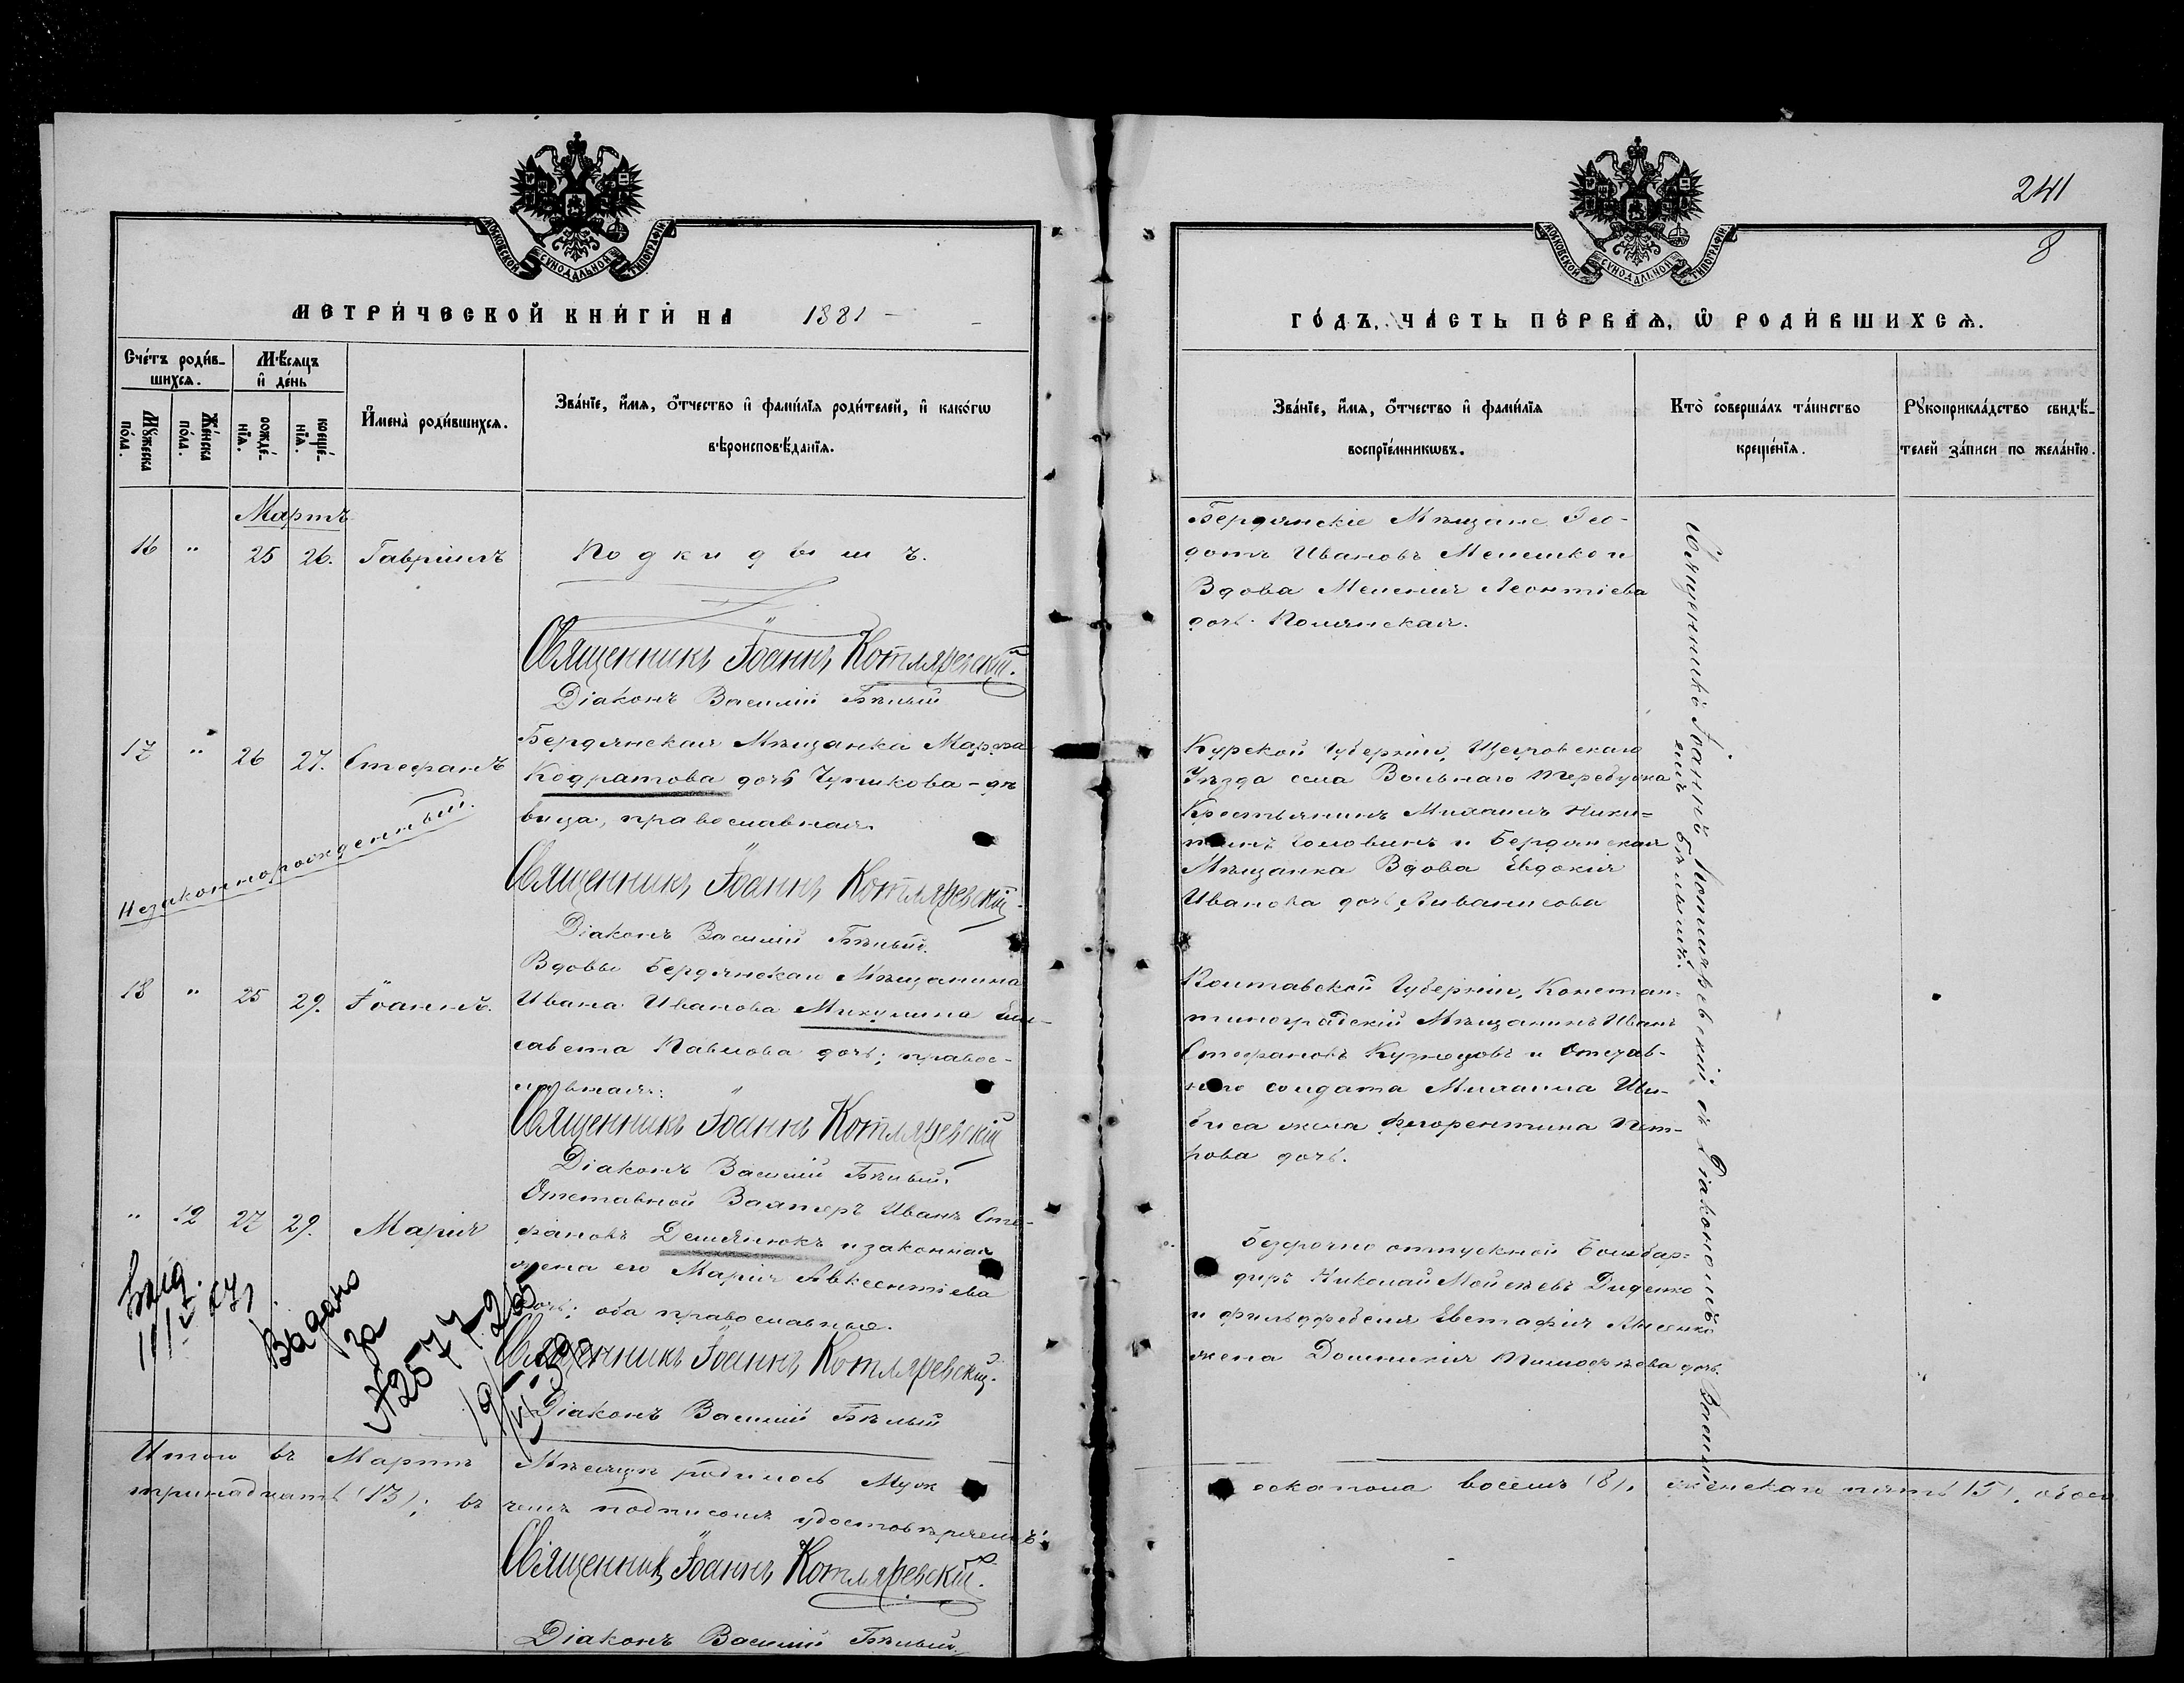 241
8
МОСКОВСКОЙ СѴНОДАЛЬНОЙ ТИПОГРАФІИ
МОСКОВСКОЙ СѴНОДАЛЬНОЙ ТИПОГРАФІИ
МЕТРИ́ЧЕСКОЙ КНИ́ГИ НА 1881
ГО́ДЪ, ЧА́СТЬ ПЕ́РВАЯ, Ѡ РОДИ́ВШИХСЯ.
Сче́тъ роди́в-
шихся.
Мꙋ́жеска по́ла.
Же́нска по́ла.
Мѣ́сяцъ и де́нь
рожде́-
нїя.
креще́-
нїя.
И҆мена̀ роди́вшихся.
Зва́нїе, и҆́мя, ѻ҆́тчество и҆ фамѝлїя роди́телей, и҆ како́гѡ
вѣроисповѣ́данїя.
Зва́нїе, и҆́мя, ѻ҆́тчество и҆ фами́лїя
воспрїе́мникѡвъ.
Кто̀ соверша́лъ та́инство
креще́нїя.
Рꙋкоприкла́дство свидѣ́-
телей за́писи по жела́нїю.
Мартъ
16 " 25 26. Гавріилъ Подкидышъ.
Священникъ Іоаннъ Котляревскій.
Діаконъ Василій Бѣлый
Бердянскіе Мѣщане Ѳео-
дотъ Ивановъ Мелешко и
Вдова Мелетія Леонтіева
дочь Полянская.
17 " 26 27. Стефанъ
Незаконнорожденный.
Бердянская Мѣщанка Марѳа
Кодратова дочь Чупикова - дѣ
вица, православная.
Священникъ Іоаннъ Котляревскій
Діаконъ Василій Бѣлый.
Курской Губерніи, Щегровскаго
Уѣзда села Вольнаго
Крестьянинъ Михаилъ Ники-
тинъ Головинъ и Бердянская
Мѣщанка Вдова Евдокія
Иванова дочь
18 " 25 29. Іоаннъ.
Вдовы Бердянскаго Мѣщанина
Ивана Иванова Микулина Ели-
савета Павлова дочь; правос-
лавная.
Священникъ Іоаннъ Котляревскій
Діаконъ Василій Бѣлый.
Полтавской Губерніи, Констан-
тиноградскій Мѣщанинъ Иванъ
Стефановъ Кузнецовъ и Отстав-
ного солдата Михаила
жена Флорентина Пет-
рова дочь.
" 12 27 29. Марія
Отставной Вахтеръ Иванъ Сте-
фановъ Демянюкъ и законная
жена его Марія Авксентіева
дочь; оба православные.
Священникъ Іоаннъ Котляревскій.
Діаконъ Василій Бѣлый
Безсрочно отпускной Бомбар-
диръ Николай Мойсеевъ Диденко
и фельдфебеля Евстафія Лисенко
жена Домникія Тимофѣева дочь.
Священникъ Іоаннъ Котляревскій съ Діакономъ Василі
емъ Бѣлымъ.
Выдано
за
№2577-265
Итого въ Мартѣ Мѣсяцѣ родилось Муж ескапола восемь (8), женскаго пять (5), обоего
тринадцать (13); въ чемъ подписомъ удостовѣряемъ:
Священникъ Іоаннъ Котляревскій.
Діаконъ Василій Бѣлый.